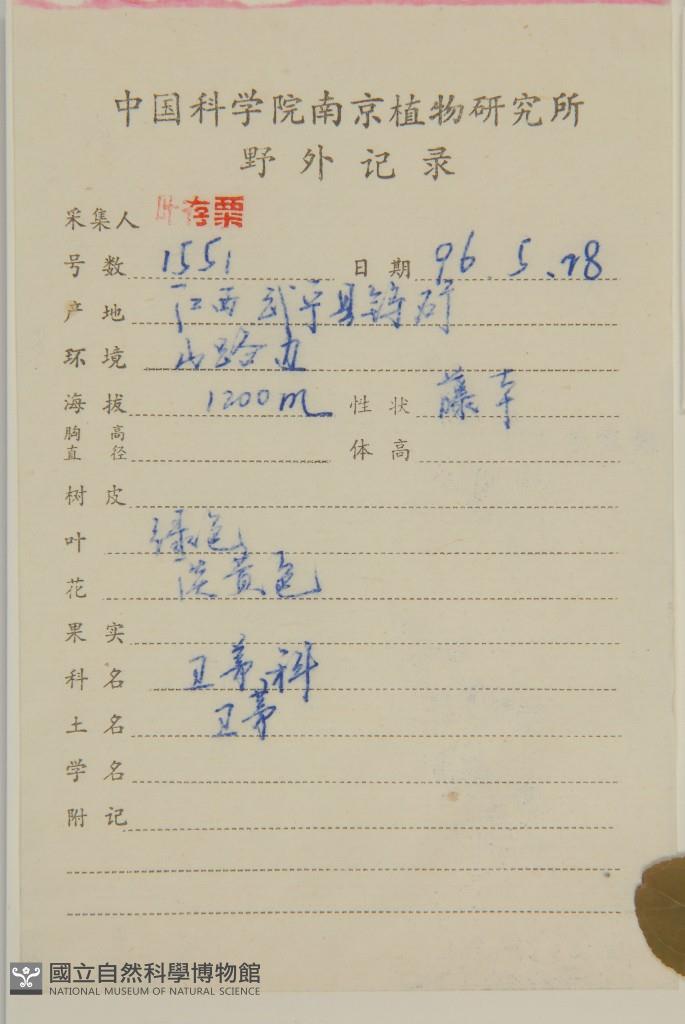 中国科学院南京植物研究所
野外记录
采集人 叶存粟
号数 1551 日期 96.5.28
产地 江西武宁县
环境 山路边
海拔 1200m 性状 藤本
胸高直径 体高
树皮
叶 绿色
花 淡黄色
果实
科名 卫茅科
土名 卫茅
学名
附记
國立自然科學博物館
NATIONAL MUSEUM OF NATURAL SCIENCE